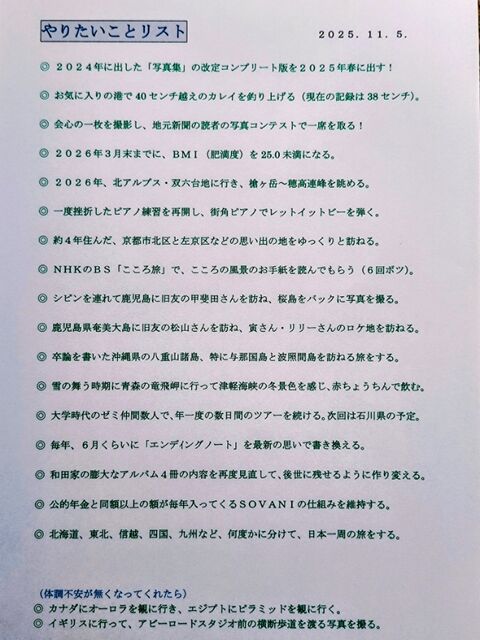 やりたいことリスト
2025. 11. 5.
◎ 2024年に出した「写真集」の改定コンプリート版を2025年春に出す！
◎ お気に入りの港で40センチ越えのカレイを釣り上げる（現在の記録は38センチ）。
◎ 会心の一枚を撮影し、地元新聞の読者の写真コンテストで一席を取る！
◎ 2026年3月末までに、BMI（肥満度）を25.0未満になる。
◎ 2026年、北アルプス・双六台地に行き、槍ヶ岳～穂高連峰を眺める。
◎ 一度挫折したピアノ練習を再開し、街角ピアノでレットイットビーを弾く。
◎ 約4年住んだ、京都市北区と左京区などの思い出の地をゆっくりと訪ねる。
◎ NHKのBS「こころ旅」で、こころの風景のお手紙を読んでもらう（6回ボツ）。
◎ シビンを連れて鹿児島に旧友の甲斐田さんを訪ね、桜島をバックに写真を撮る。
◎ 鹿児島県奄美大島に旧友の松山さんを訪ね、寅さん・リリーさんのロケ地を訪ねる。
◎ 卒論を書いた沖縄県の八重山諸島、特に与那国島と波照間島を訪ねる旅をする。
◎ 雪の舞う時期に青森の竜飛岬に行って津軽海峡の冬景色を感じ、赤ちょうちんで飲む。
◎ 大学時代のゼミ仲間数人で、年一度の数日間のツアーを続ける。次回は石川県の予定。
◎ 毎年、6月くらいに「エンディングノート」を最新の思いで書き換える。
◎ 和田家の膨大なアルバム4冊の内容を再度見直して、後世に残せるように作り変える。
◎ 公的年金と同額以上の額が毎年入ってくるSOVANIの仕組みを維持する。
◎ 北海道、東北、信越、四国、九州など、何度かに分けて、日本一周の旅をする。
（体調不安が無くなってくれたら）
◎ カナダにオーロラを観に行き、エジプトにピラミッドを観に行く。
◎ イギリスに行って、アビーロードスタジオ前の横断歩道を渡る写真を撮る。